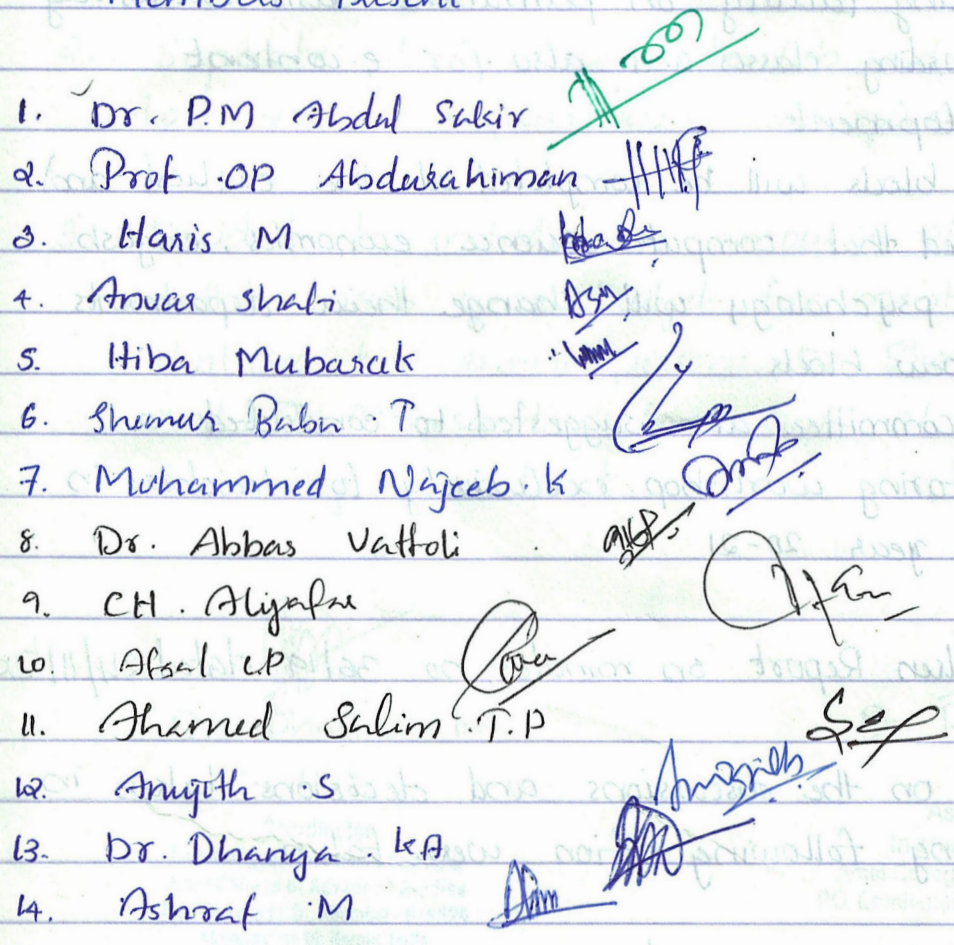 Members Present
1. Dr. P.M Abdul Sakir
2. Prof .OP Abdurahiman
3. Haris M
4. Anvar Shafi
5. Hiba Mubarak
6. Shemeer Babu T
7. Muhammed Najeeb.K
8. Dr. Abbas Vattoli
9. CH. Aligafar
10. Afsal C.P
11. Ahamed Salim.T.P
12. Anujith .S
13. Dr. Dhanya. KA
14. Ashraf .M